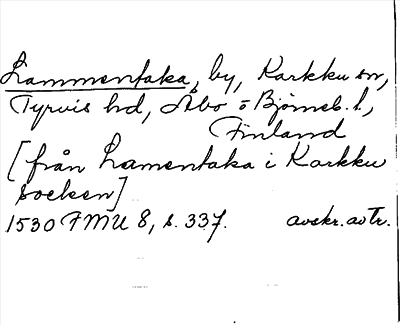 Lammentaka, by, Karkku sn,
Tyrvis hd, Åbo o Björneb. l,
Finland
[från Lamentaka i Karkku
socken]
1530 FMU 8, s. 337. avskr. av Tr.